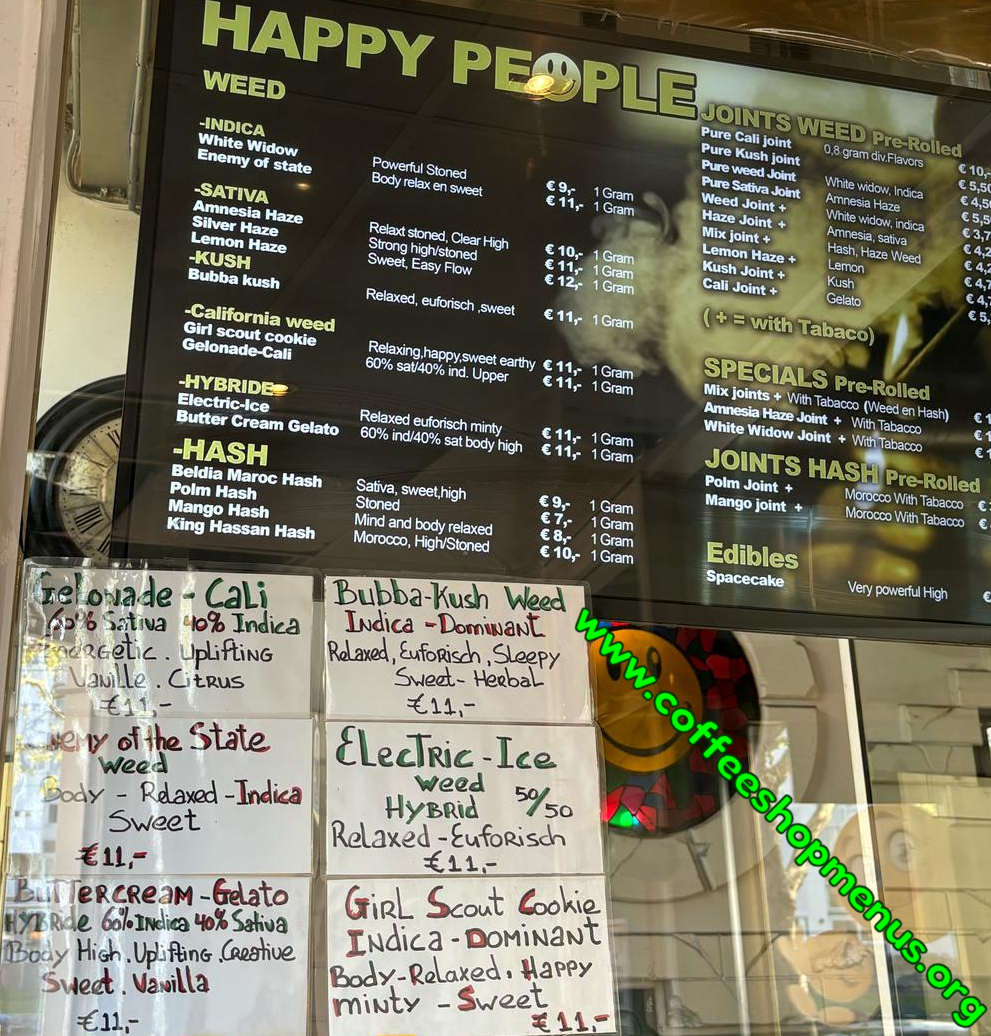 HAPPY PEOPLE
WEED
-INDICA
White Widow Powerful Stoned € 9,- 1 Gram
Enemy of state Body relax en sweet € 11,- 1 Gram
-SATIVA
Amnesia Haze Relaxt stoned, Clear High € 10,- 1 Gram
Silver Haze Strong high/stoned € 11,- 1 Gram
Lemon Haze Sweet, Easy Flow € 12,- 1 Gram
-KUSH
Bubba kush Relaxed, euforisch ,sweet € 11,- 1 Gram
-California weed
Girl scout cookie Relaxing,happy,sweet earthy € 11,- 1 Gram
Gelonade-Cali 60% sat/40% ind. Upper € 11,- 1 Gram
-HYBRIDE
Electric-Ice Relaxed euforisch minty € 11,- 1 Gram
Butter Cream Gelato 60% ind/40% sat body high € 11,- 1 Gram
-HASH
Beldia Maroc Hash Sativa, sweet,high € 9,- 1 Gram
Polm Hash Stoned € 7,- 1 Gram
Mango Hash Mind and body relaxed € 8,- 1 Gram
King Hassan Hash Morocco, High/Stoned € 10,- 1 Gram
JOINTS WEED Pre-Rolled
Pure Cali joint 0,8 gram div.Flavors € 10,-
Pure Kush joint € 5,50
Pure weed Joint White widow, Indica € 4,50
Pure Sativa Joint Amnesia Haze € 5,5
Weed Joint + White widow, indica € 3,7
Haze Joint + Amnesia, sativa € 4,2
Mix joint + Hash, Haze Weed € 4,2
Lemon Haze + Lemon € 4,7
Kush Joint + Kush € 4,
Cali Joint + Gelato € 5,
( + = with Tabaco)
SPECIALS Pre-Rolled
Mix joints + With Tabacco (Weed en Hash) € 1
Amnesia Haze Joint + With Tabacco € 1
White Widow Joint + With Tabacco € 1
JOINTS HASH Pre-Rolled
Polm Joint + Morocco With Tabacco €
Mango joint + Morocco With Tabacco €
Edibles
Spacecake Very powerful High €
Gelonade - Cali
60% Sativa 40% Indica
Energetic . Uplifting
Vanille . Citrus
€11,-
Bubba-Kush Weed
Indica - Dominant
Relaxed, Euforisch, Sleepy
Sweet - Herbal
€11,-
Enemy of the State
Weed
Body - Relaxed - Indica
Sweet
€11,-
Electric - Ice
Weed
Hybrid 50/50
Relaxed - Euforisch
€11,-
Buttercream - Gelato
Hybride 60% Indica 40% Sativa
Body High . Uplifting . Creative
Sweet . Vanilla
€11,-
Girl Scout Cookie
Indica - Dominant
Body-Relaxed. Happy
minty - Sweet
€11,-
www.coffeeshopmenus.org